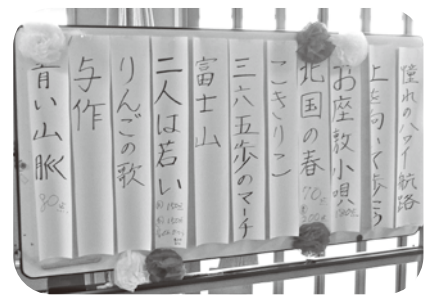 憧れのハワイ航路
上を向いて歩こう
お座敷小唄
北国の春
70点
こきりこ
三六五歩のマーチ
富士山
二人は若い
りんごの歌
与作
青い山脈
80点